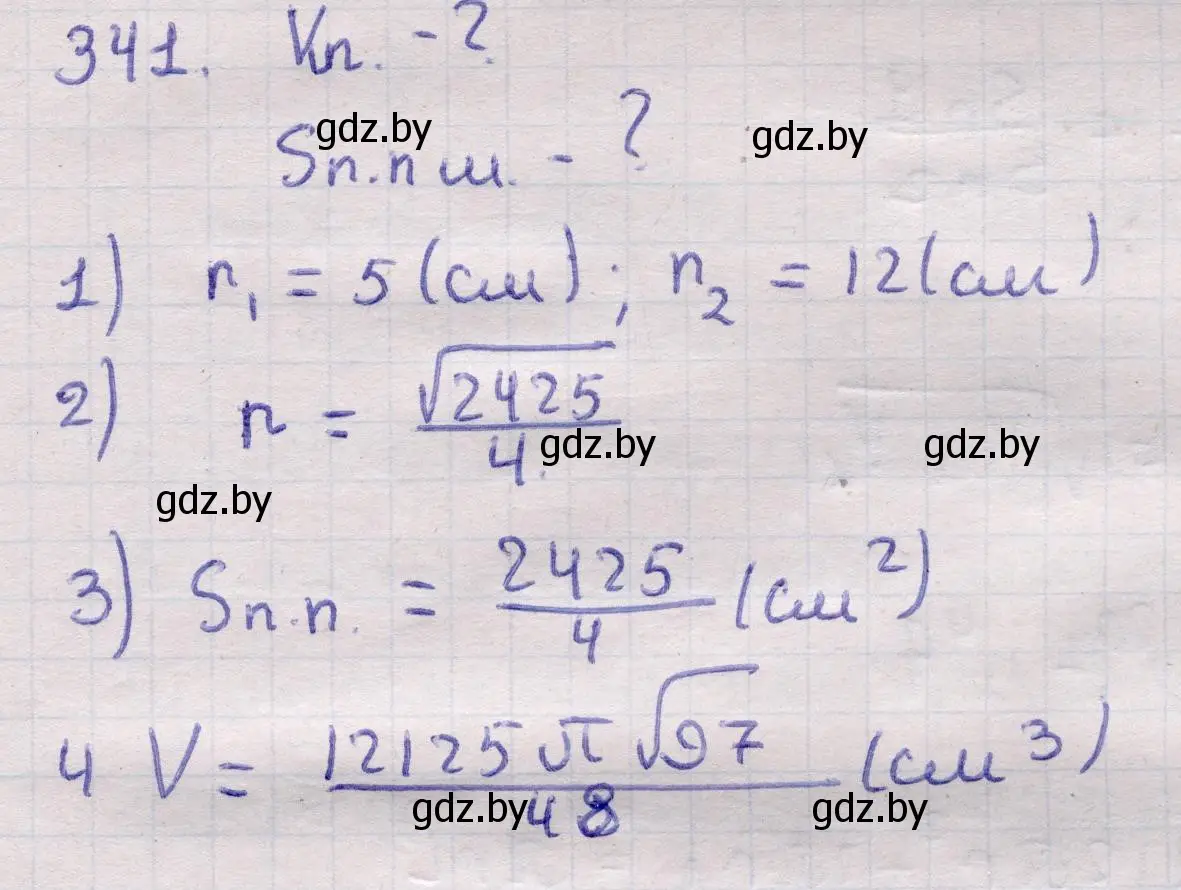 341. Vш. - ?
gdz.by
gdz.by
Sп.п ш. - ?
1) r₁ = 5 (см); r₂ = 12 (см)
2) r = √2425 / 4
gdz.by
gdz.by
gdz.by
3) Sп.п. = 2425 / 4 (см²)
4 V = 12125 π √97 / 48 (см³)
gdz.by
gdz.by